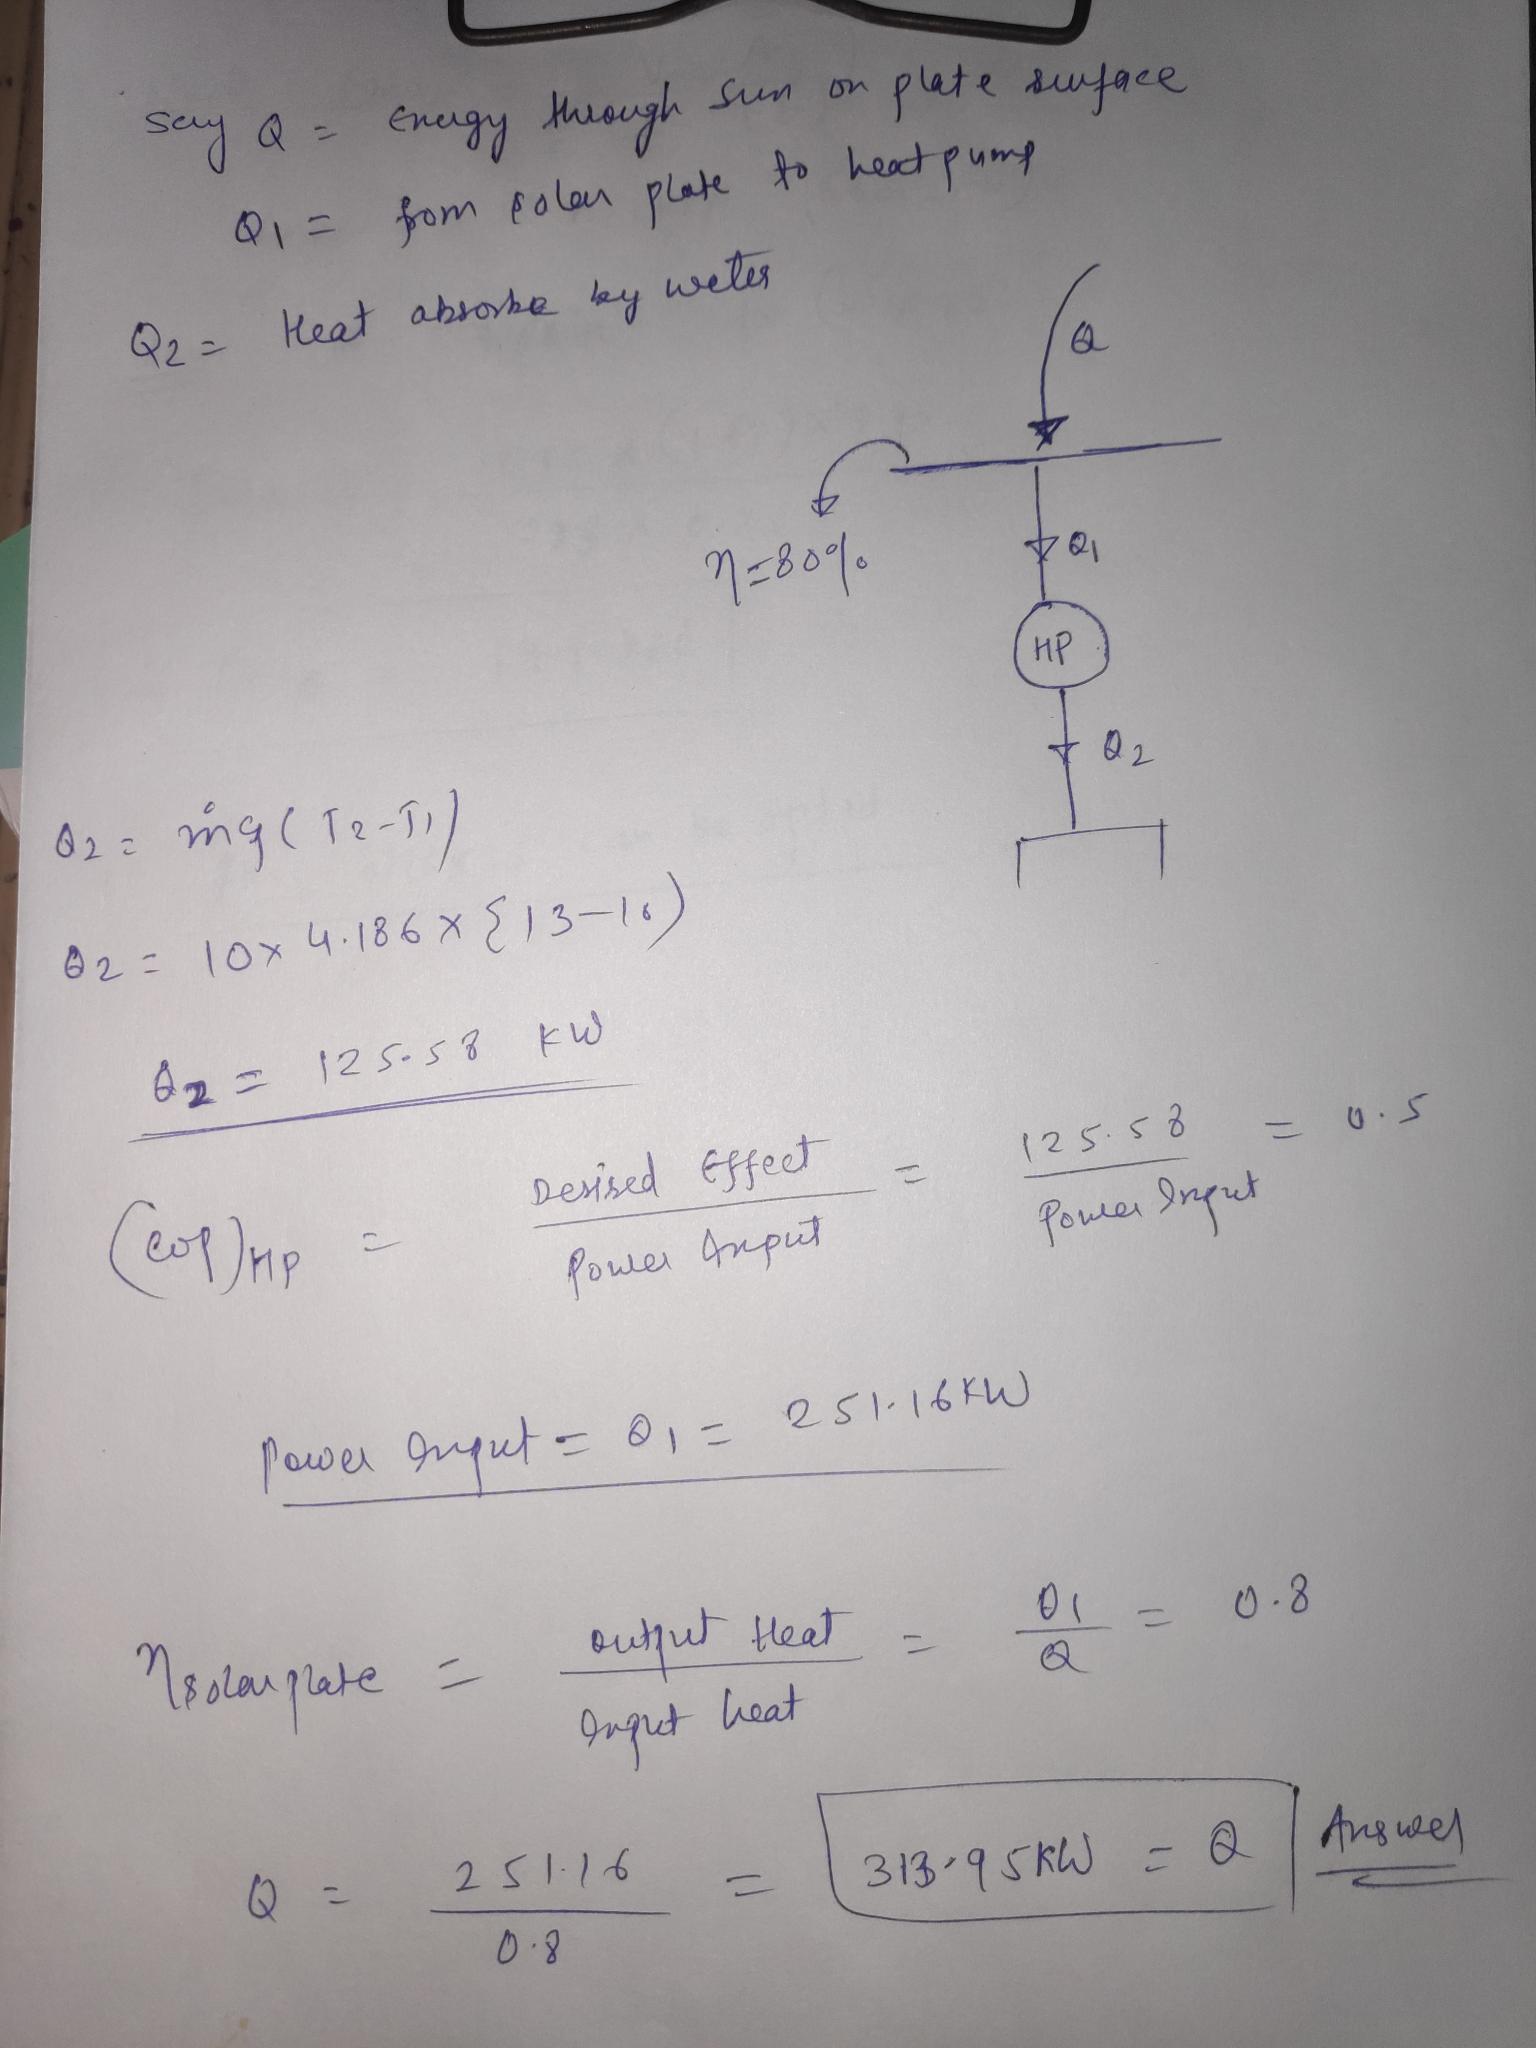 say Q = Energy through Sun on plate surface
Q1 = from solar plate to heat pump
Q2 = Heat absorbe by water
Q
η=80%
Q1
HP
Q2
Q2 = ṁcp(T2-T1)
Q2 = 10x 4.186 x {13-10)
Q2 = 125.58 KW
(COP)HP = Desired Effect / Power Input = 125.58 / Power Input = 0.5
Power Input = Q1 = 251.16KW
ηsolar plate = output Heat / Input heat = Q1 / Q = 0.8
Q = 251.16 / 0.8 = 313.95KW = Q Answer